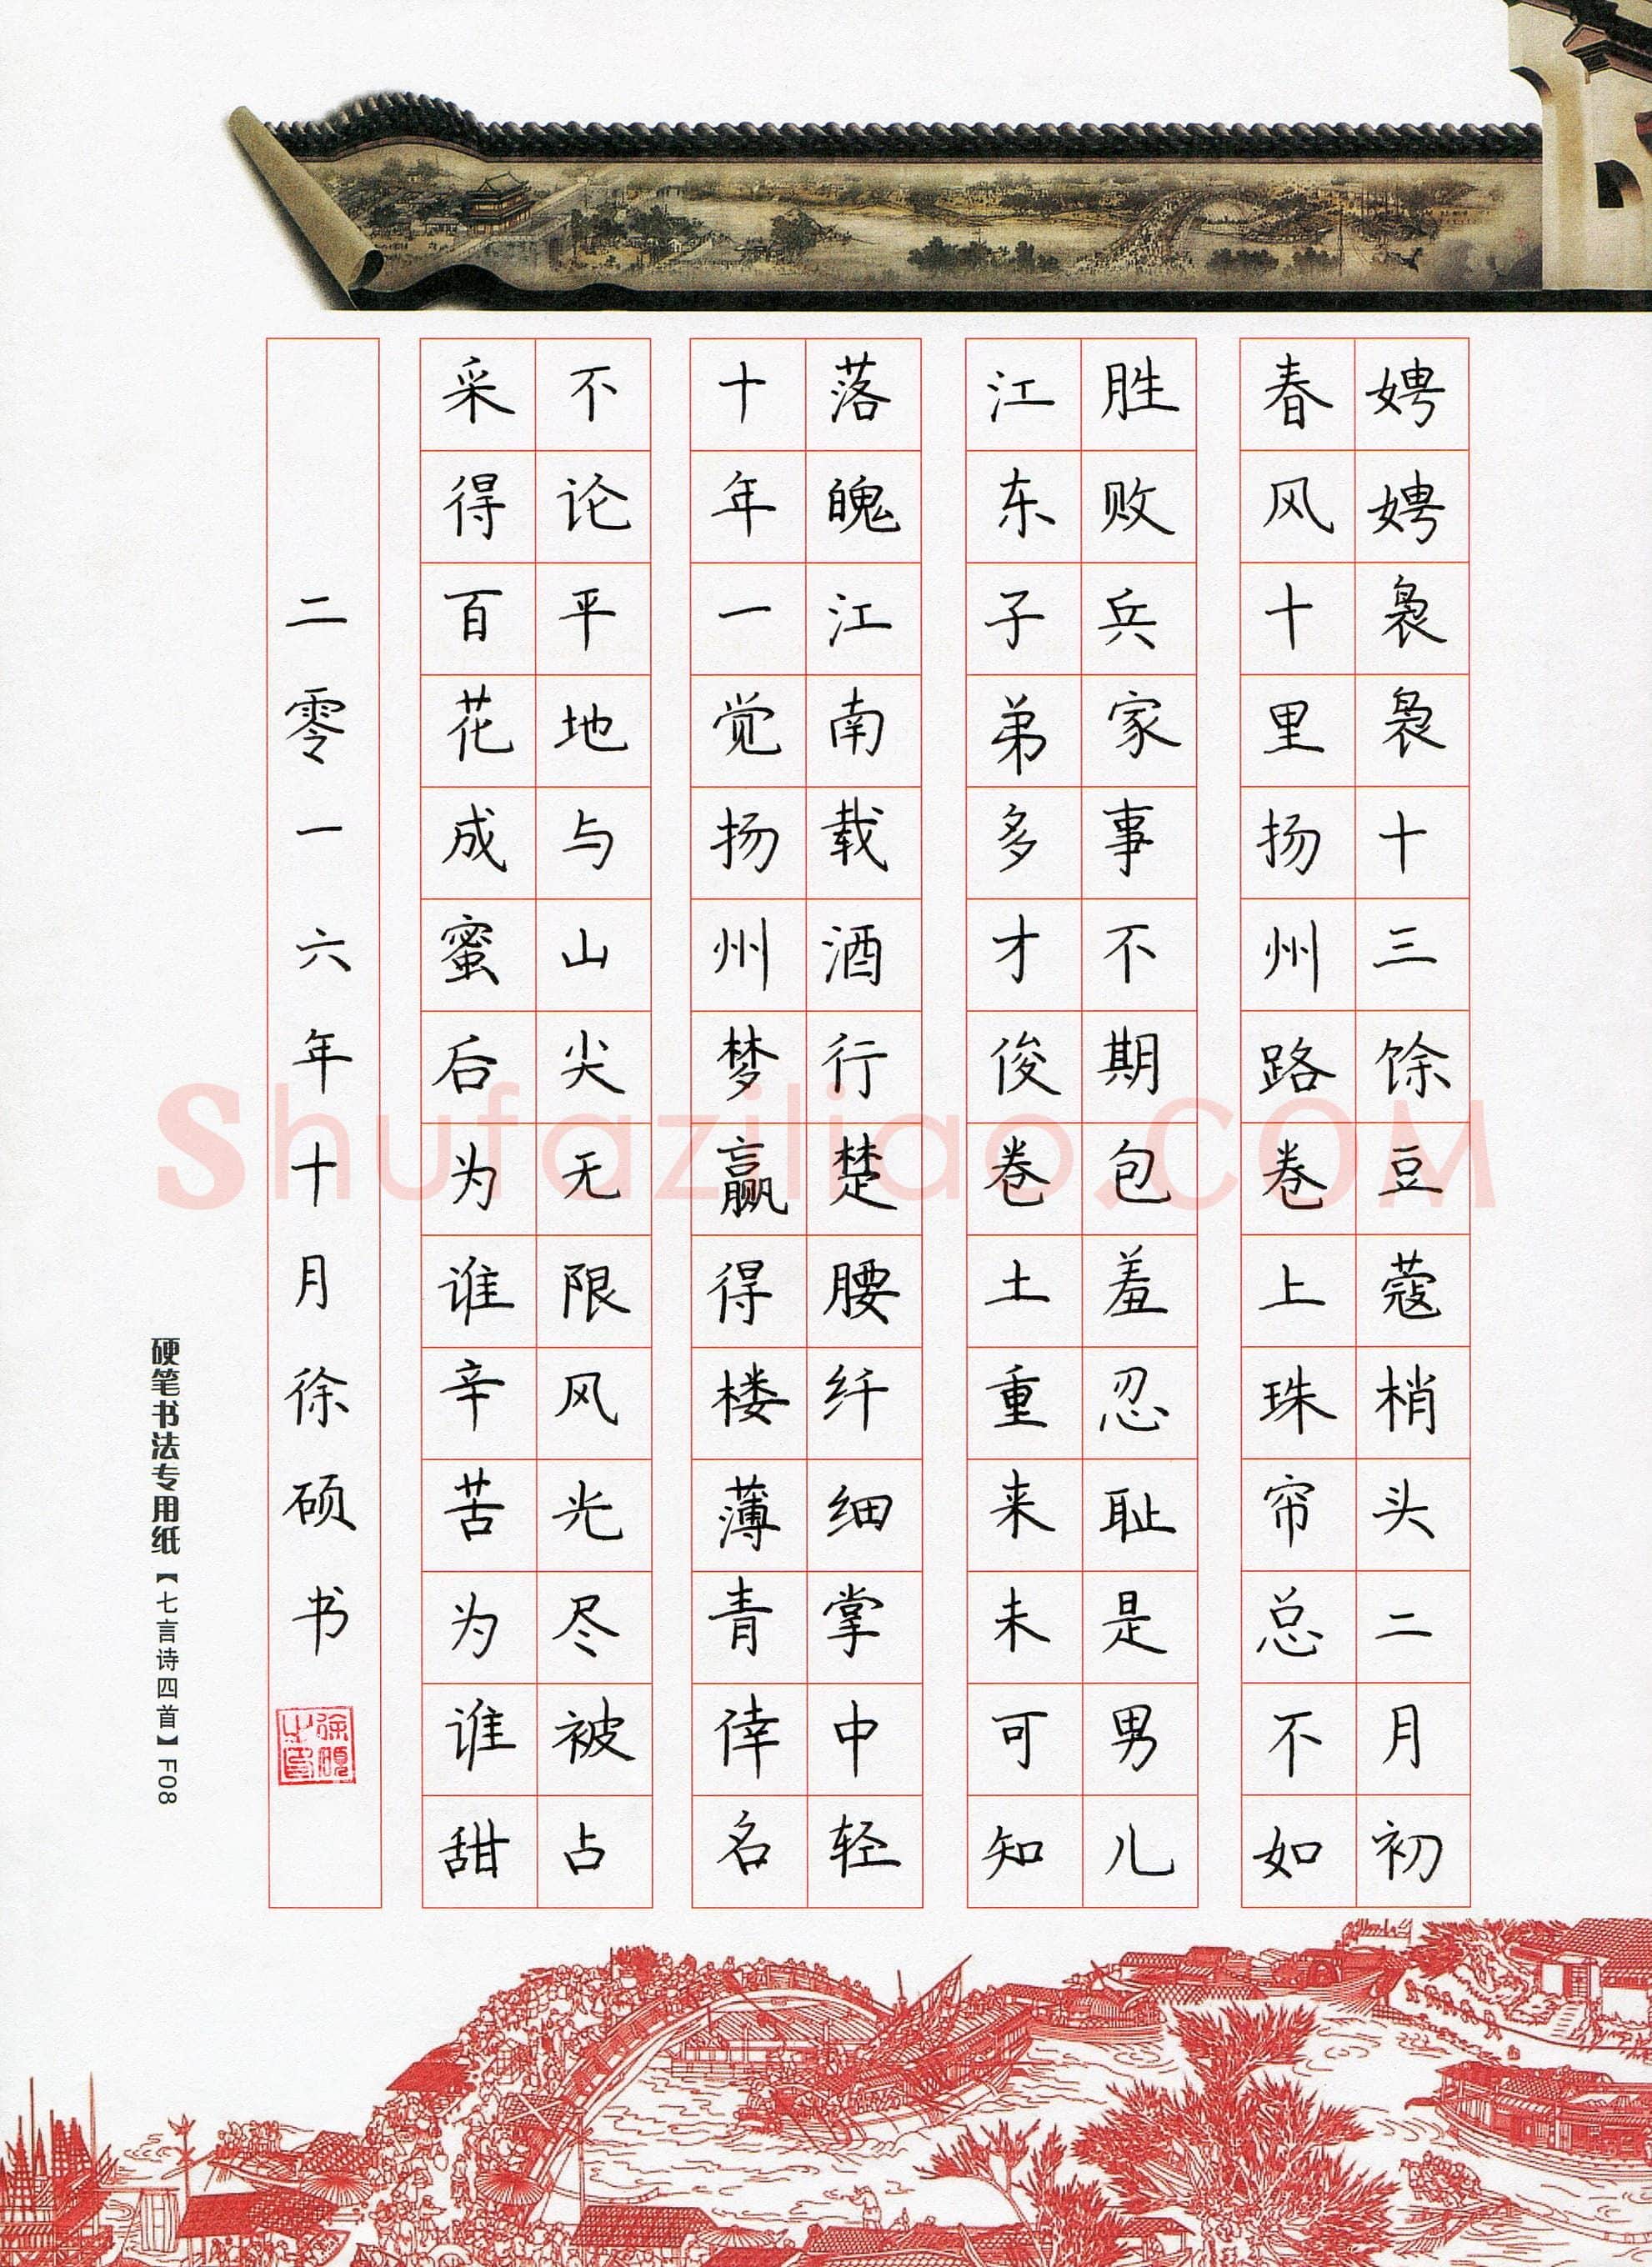 娉娉袅袅十三馀豆蔻梢头二月初
春风十里扬州路卷上珠帘总不如
胜败兵家事不期包羞忍耻是男儿
江东子弟多才俊卷土重来未可知
落魄江南载酒行楚腰纤细掌中轻
十年一觉扬州梦赢得楼薄青倖名
不论平地与山尖无限风光尽被占
采得百花成蜜后为谁辛苦为谁甜
二零一六年十月徐硕书
徐硕之印
硬笔书法专用纸【七言诗四首】F08
Shufaziliao.COM